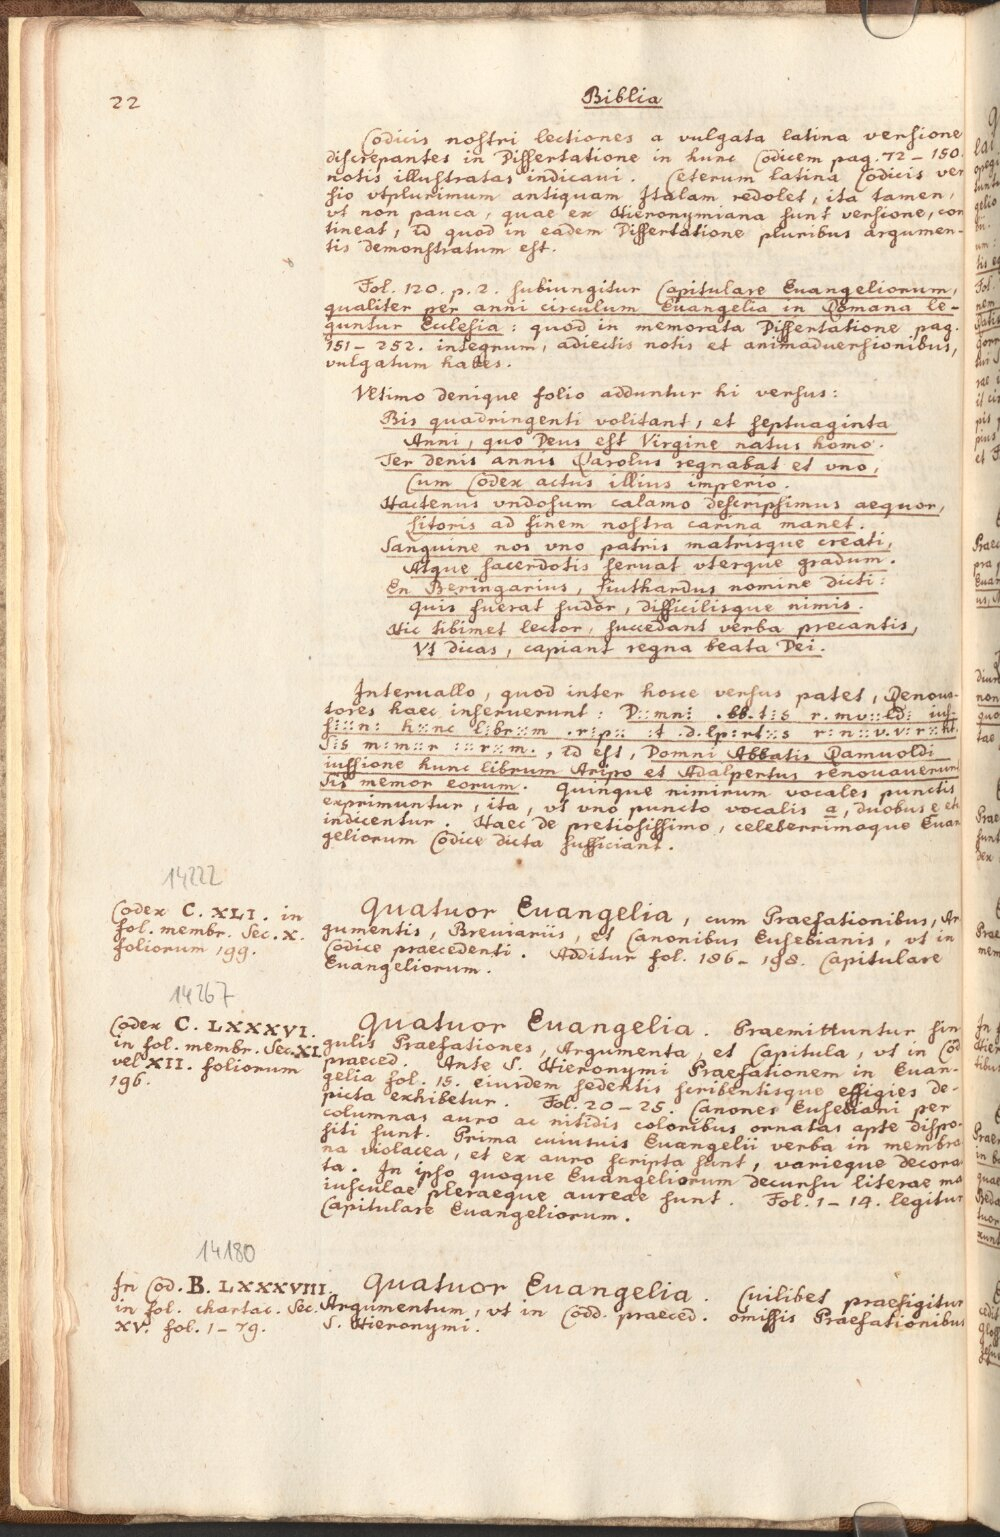 22
Biblia
Codicis nostri lectiones a vulgata latina versione
discrepantes in Dissertatione in hunc Codicem pag. 72 – 150.
notis illustratas indicaui. Ceterum latina Codicis ver
sio vtplurimum antiquam Italam redolet, ita tamen,
vt non pauca, quae ex Hieronymiana sunt versione, con
tineat, id quod in eadem Dissertatione pluribus argumen-
tis demonstratum est.
Fol. 120. p. 2. subiungitur Capitulare Euangeliorum,
qualiter per anni circulum Euangelia in Romana le-
guntur Ecclesia : quod in memorata Dissertatione pag.
151 – 252. integrum, adiectis notis et animaduersionibus,
vulgatum habes.
Vltimo denique folio adduntur hi versus :
Bis quadringenti volitant, et septuaginta
Anni, quo Deus est Virgine natus homo.
Ter denis annis Karolus regnabat et vno,
Cum Codex actus illius imperio.
Hactenus vndosum calamo descripsimus aequor,
Litoris ad finem nostra carina manet.
Sanguine nos vno patris matrisque creati,
Atque sacerdotis seruat vterque gradum.
En Beringarius, Liuthardus nomine dicti :
quis fuerat sudor, difficilisque nimis.
Hic tibimet lector, succedant verba precantis,
Vt dicas, capiant regna beata Dei.
Interuallo, quod inter hosce versus patet, Renoua-
tores haec inseruerunt : D::mn: .bb.t:s r.mv::ld: iuſ-
s:::n: h::nc l:br::m .r:p:: :t .d.lp:rt::s r:n::v.v:r::nt.
S:s m:m::r ::r::m., id est, Domni Abbatis Ramuoldi
iussione hunc librum Aripo et Adalpertus renouauerunt
Sis memor eorum. Quinque nimirum vocales punctis
exprimuntur, ita, vt vno puncto vocalis a, duobus e etc
indicentur. Haec de pretiosissimo, celeberrimoque Euan
geliorum Codice dicta sufficiant.
14222
Codex C. XLI. in
fol. membr. Sec. X.
foliorum 199.
Quatuor Euangelia, cum Praefationibus, Ar
gumentis, Breviariis, et Canonibus Eusebianis, vt in
Codice praecedenti. Additur fol. 186 – 198. Capitulare
Euangeliorum.
14267
Codex C. LXXXVI.
in fol. membr. Sec. XI
vel XII. foliorum
196.
Quatuor Euangelia. Praemittuntur sin
gulis Praefationes, Argumenta, et Capitula, vt in Cod
praeced. Ante S. Hieronymi Praefationem in Euan-
gelia fol. 15. eiusdem sedentis scribentisque effigies de-
picta exhibetur. Fol. 20 – 25. Canones Eusebiani per
columnas auro ac nitidis coloribus ornatas apte dispo-
siti sunt. Prima cuiusuis Euangelii verba in membra
na violacea, et ex auro scripta sunt, varieque decora
ta. In ipso quoque Euangeliorum decursu literae ma
iusculae pleraeque aureae sunt. Fol. 1 – 14. legitur
Capitulare Euangeliorum.
14180
In Cod. B. LXXXVIII.
in fol. chartac. Sec.
XV. fol. 1 – 79.
Quatuor Euangelia. Cuilibet praefigitur
Argumentum, vt in Codd. praeced. omissis Praefationibus
S. Hieronymi.